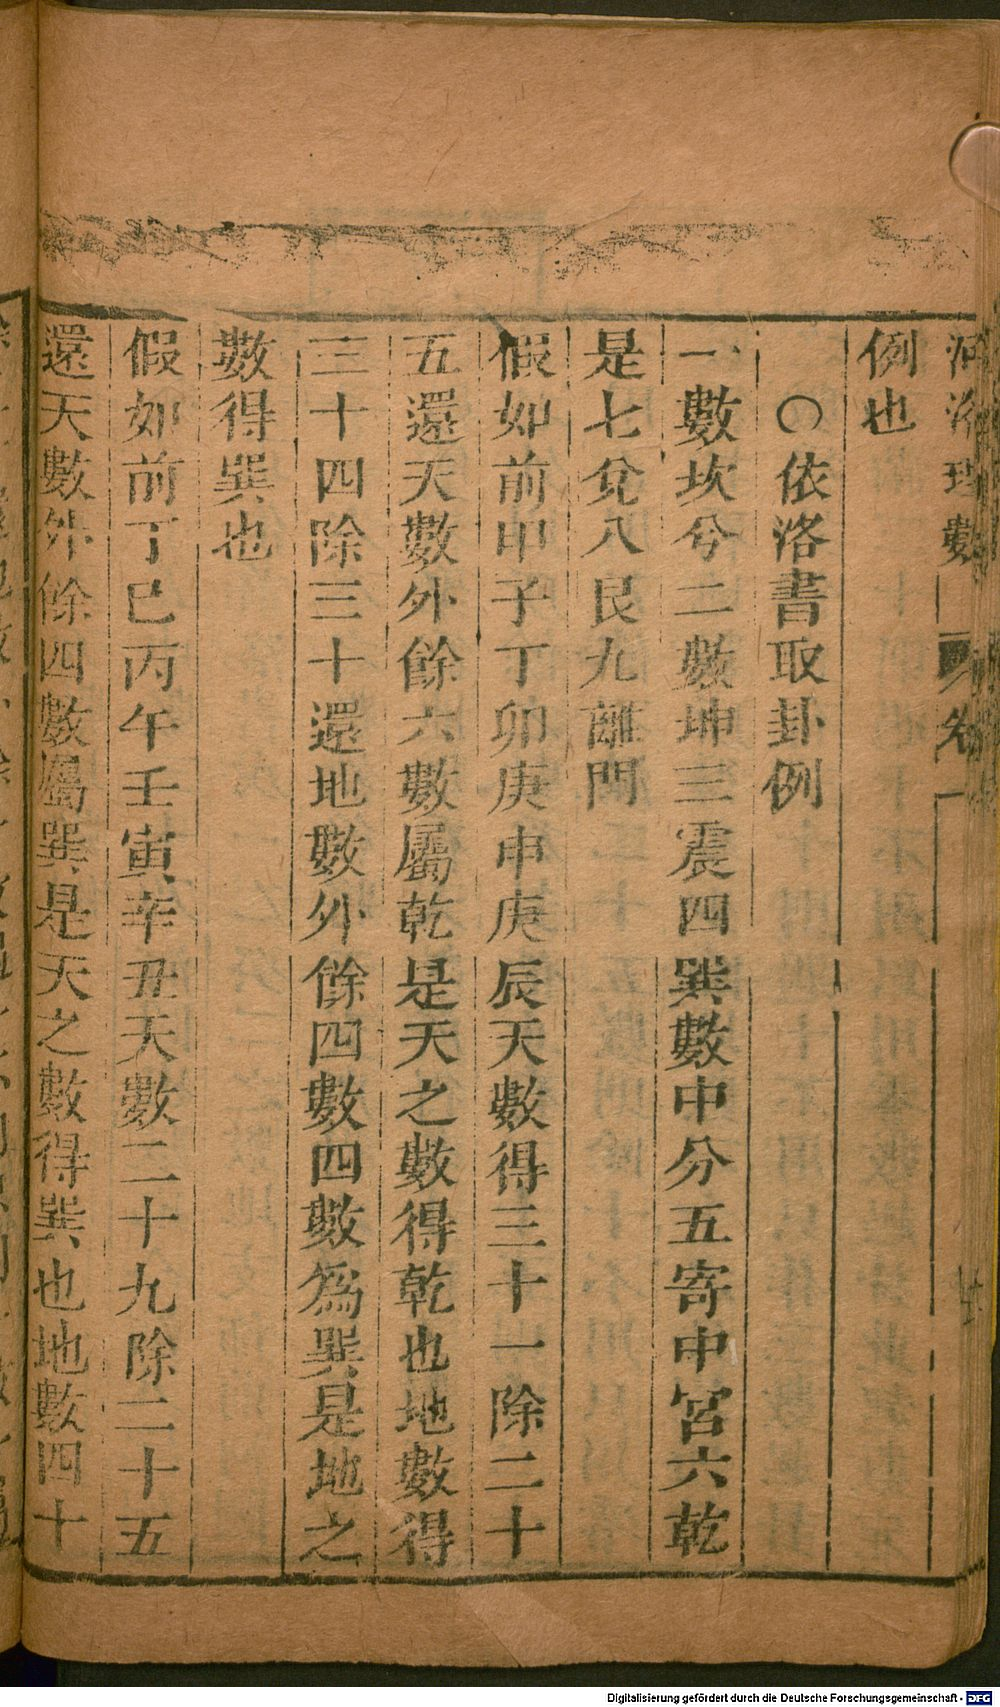 河洛理數 卷一
例也
○依洛書取卦例
一數坎兮二數坤三震四巽數中分五寄中宮六乾
是七兌八艮九離門
假如前甲子丁卯庚申庚辰天數得三十一除二十
五還天數外餘六數屬乾是天之數得乾也地數得
三十四除三十還地數外餘四數四數爲巽是地之
數得巽也
假如前丁巳丙午壬寅辛丑天數二十九除二十五
還天數外餘四數屬巽是天之數得巽也地數四十
Digitalisierung gefördert durch die Deutsche Forschungsgemeinschaft - DFG